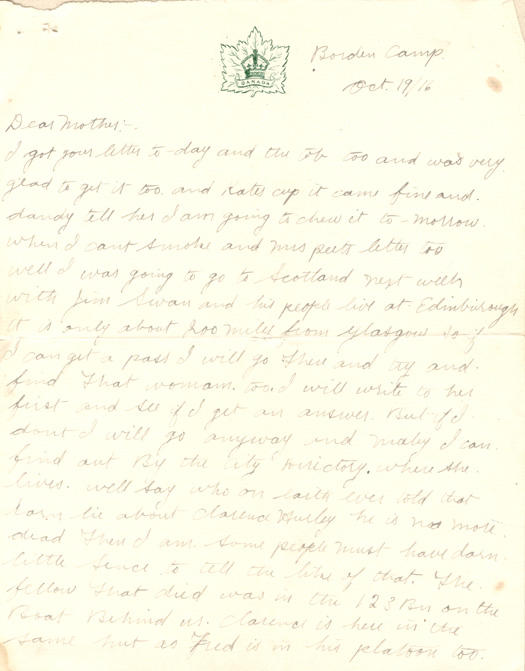 CANADA
Borden Camp.
Oct. 19/16
Dear Mother:-.
I got your letter to-day and the tob too and was very
glad to get it too. and Kates cup it came fine and.
dandy tell her I am going to chew it to-morrow.
when I cant smoke and Mrs peets letter too
well I was going to go to Scotland next week
with Jim Swan and his people live at Edinbiurough
It is only about 200 miles from Glasgow so if
I can get a pass I will go there and try and.
find that woman. too. I will write to her
first and see if I get an answer. But if I.
dont I will go anyway and maby I can.
find out By the city directory. where she.
lives. well say who on earth ever told that
darn lie about Clarence Hurley he is no more.
dead then I am. some people must have darn.
little sence to tell the like of that. The.
fellow that died was in the 123 Bn on the
Boat Behind us. Clarence is here in the
same hut as Fred is in his platoon too.